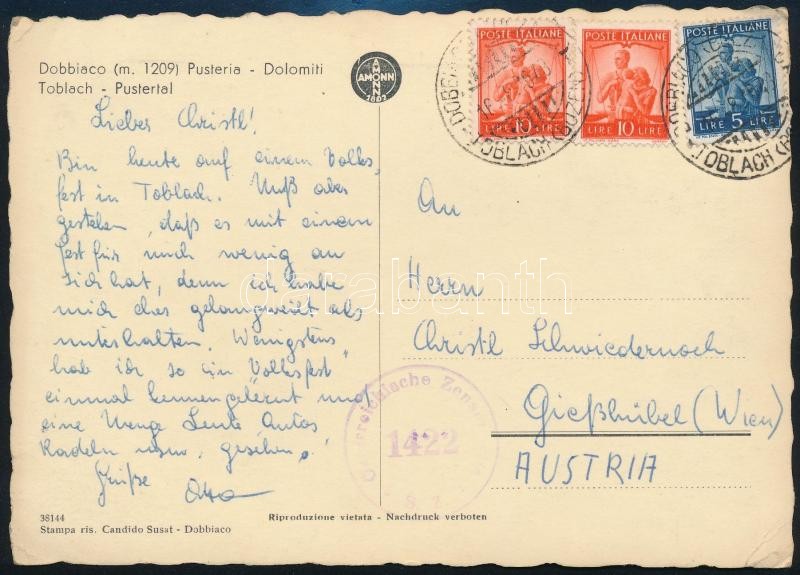 Dobbiaco (m. 1209) Pusteria - Dolomiti
Toblach - Pustertal
AMONN
1802
POSTE ITALIANE
LIRE 10 LIRE
POSTE ITALIANE
LIRE 10 LIRE
POSTE ITALIANE
LIRE 5 LIRE
TOBLACH (BOZEN)
TOBLACH
Lieber Christl!
Bin heute auf einem Volks-
fest in Toblach. Muß aber
gestehen, daß es mit einem
Fest für mich wenig an
sich hat, denn ich habe
mich eher gelangweilt als
unterhalten. Wenigstens
hab ich so ein "Volksfest"
einmal kennengelernt und
eine Menge Leute Autos
Radeln usw. gesehen.
Grüße
Otto
An
Herrn
Christl Schwiedernoch
Gießhübel (Wien)
AUSTRIA
Österreichische Zensur
1422
38144
Stampa ris. Candido Susat - Dobbiaco
Riproduzione vietata - Nachdruck verboten
darabanth